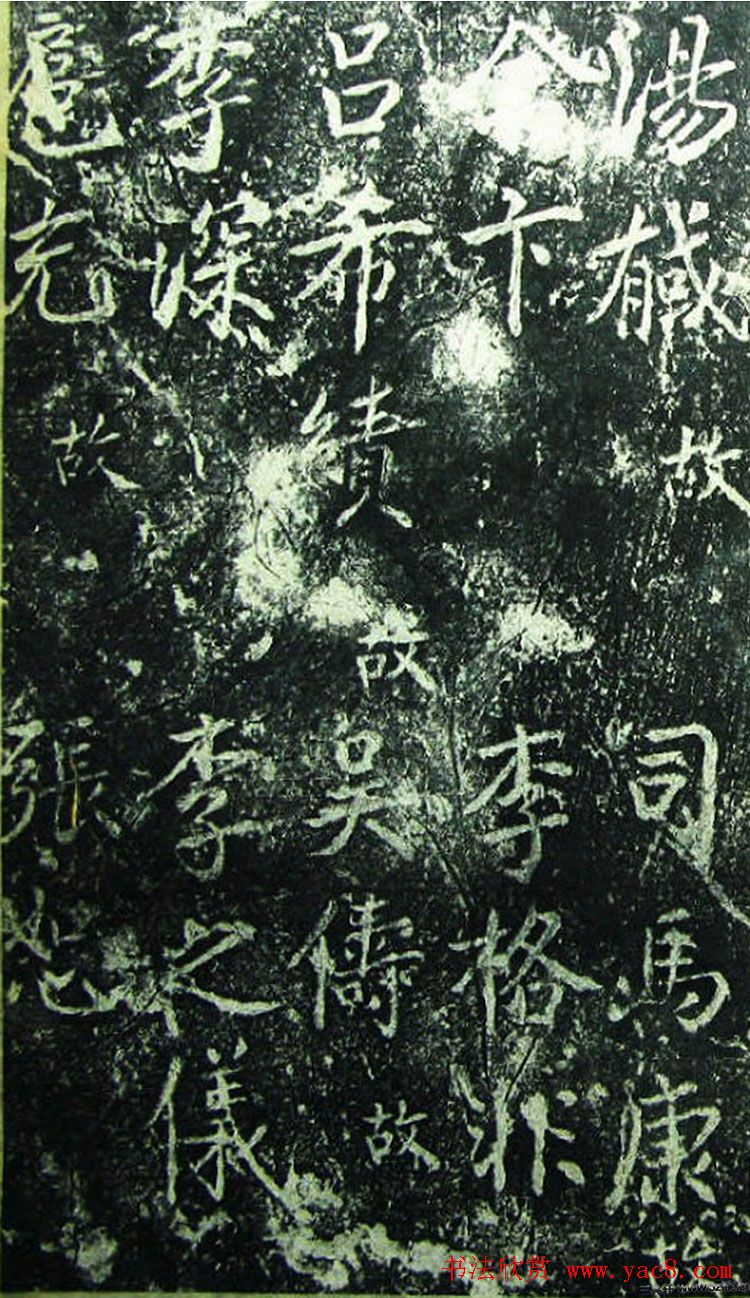 湯馘 故 司馬康
余卞 李格非
吕希績 故 吳儔 故
李深 李之儀
扈充 故 張恕
书法欣赏 www.yac8.com